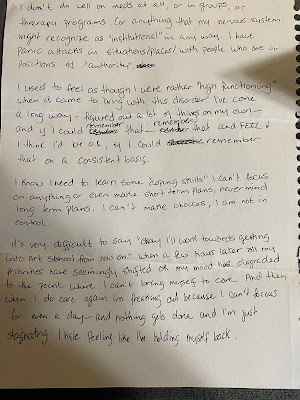 I don't do well on meds at all, or in groups, or
therapy programs. (or anything that my nervous system
might recognize as "institutional" in any way. I have
panic attacks in situations/places/ with people who are in
positions of "authority"
I used to feel as though I were rather "high functioning"
when it came to living with this disorder. I've come
a long way - figured out a lot of things on my own -
and if I could remember that - remember that and FEEL it
I think I'd be o.k, if I could remember
that on a consistent basis.
I know I need to learn some "coping skills" I can't focus
on anything or even make short term plans, nevermind
long term plans. I can't make choices, I am not in
control.
It's very difficult to say "okay I'll work towards getting
into art school from now on" when a few hours later all my
priorities have seemingly shifted or my mood has degraded
to the point where I can't bring myself to care. And then
when I do care again I'm freaking out because I can't focus
for even a day - and nothing gets done and I'm just
stagnating. I hate feeling like I'm holding myself back.